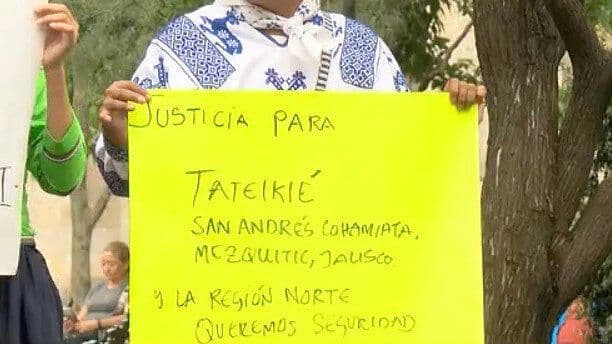 JUSTICIA PARA
TATEIKIÉ
SAN ANDRÉS COHAMIATA,
MEZQUITIC, JALISCO
Y LA REGIÓN NORTE
QUEREMOS SEGURIDAD